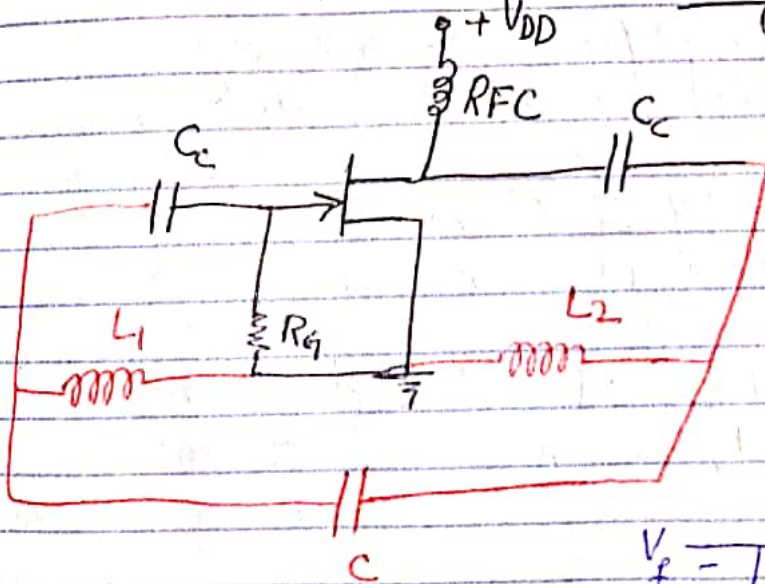 + VDD
RFC
Cc
Cc
L1
RG
L2
C
Vf =